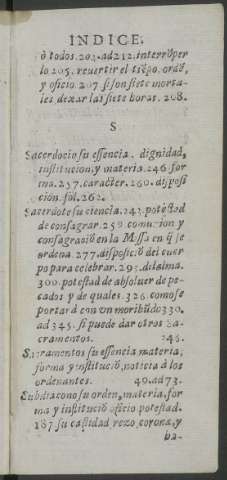 INDICE.
ò todos. 203. ad 212. interrõper
lo 205. reuertir el tiẽpo. ordẽ,
y oficio. 207 si son siete morta-
les dexar las siete horas. 208.
S
Sacerdocio su essencia. dignidad,
institucion, y materia. 246. for
ma. 257. caracter. 260. disposi
ción. fol. 262.
Sacerdote su ciencia. 243. potestad
de consagrar. 250 comunion y
consagració en la Missa en q̃ se
ordena. 277. disposició del cuer
po para celebrar. 295. del alma.
300. potestad de absoluer de pe-
cados y de quales. 326. como se
portarà con vn moribũdo 330.
ad 345. si puede dar otros Sa-
cramentos. 346.
Sacramentos su essencia materia,
forma y institució, noticia à los
ordenantes. 40. ad 73.
Subdiacono su orden, materia, for
ma y institució oficio potestad.
187 su castidad rezo, corona, y
ba-